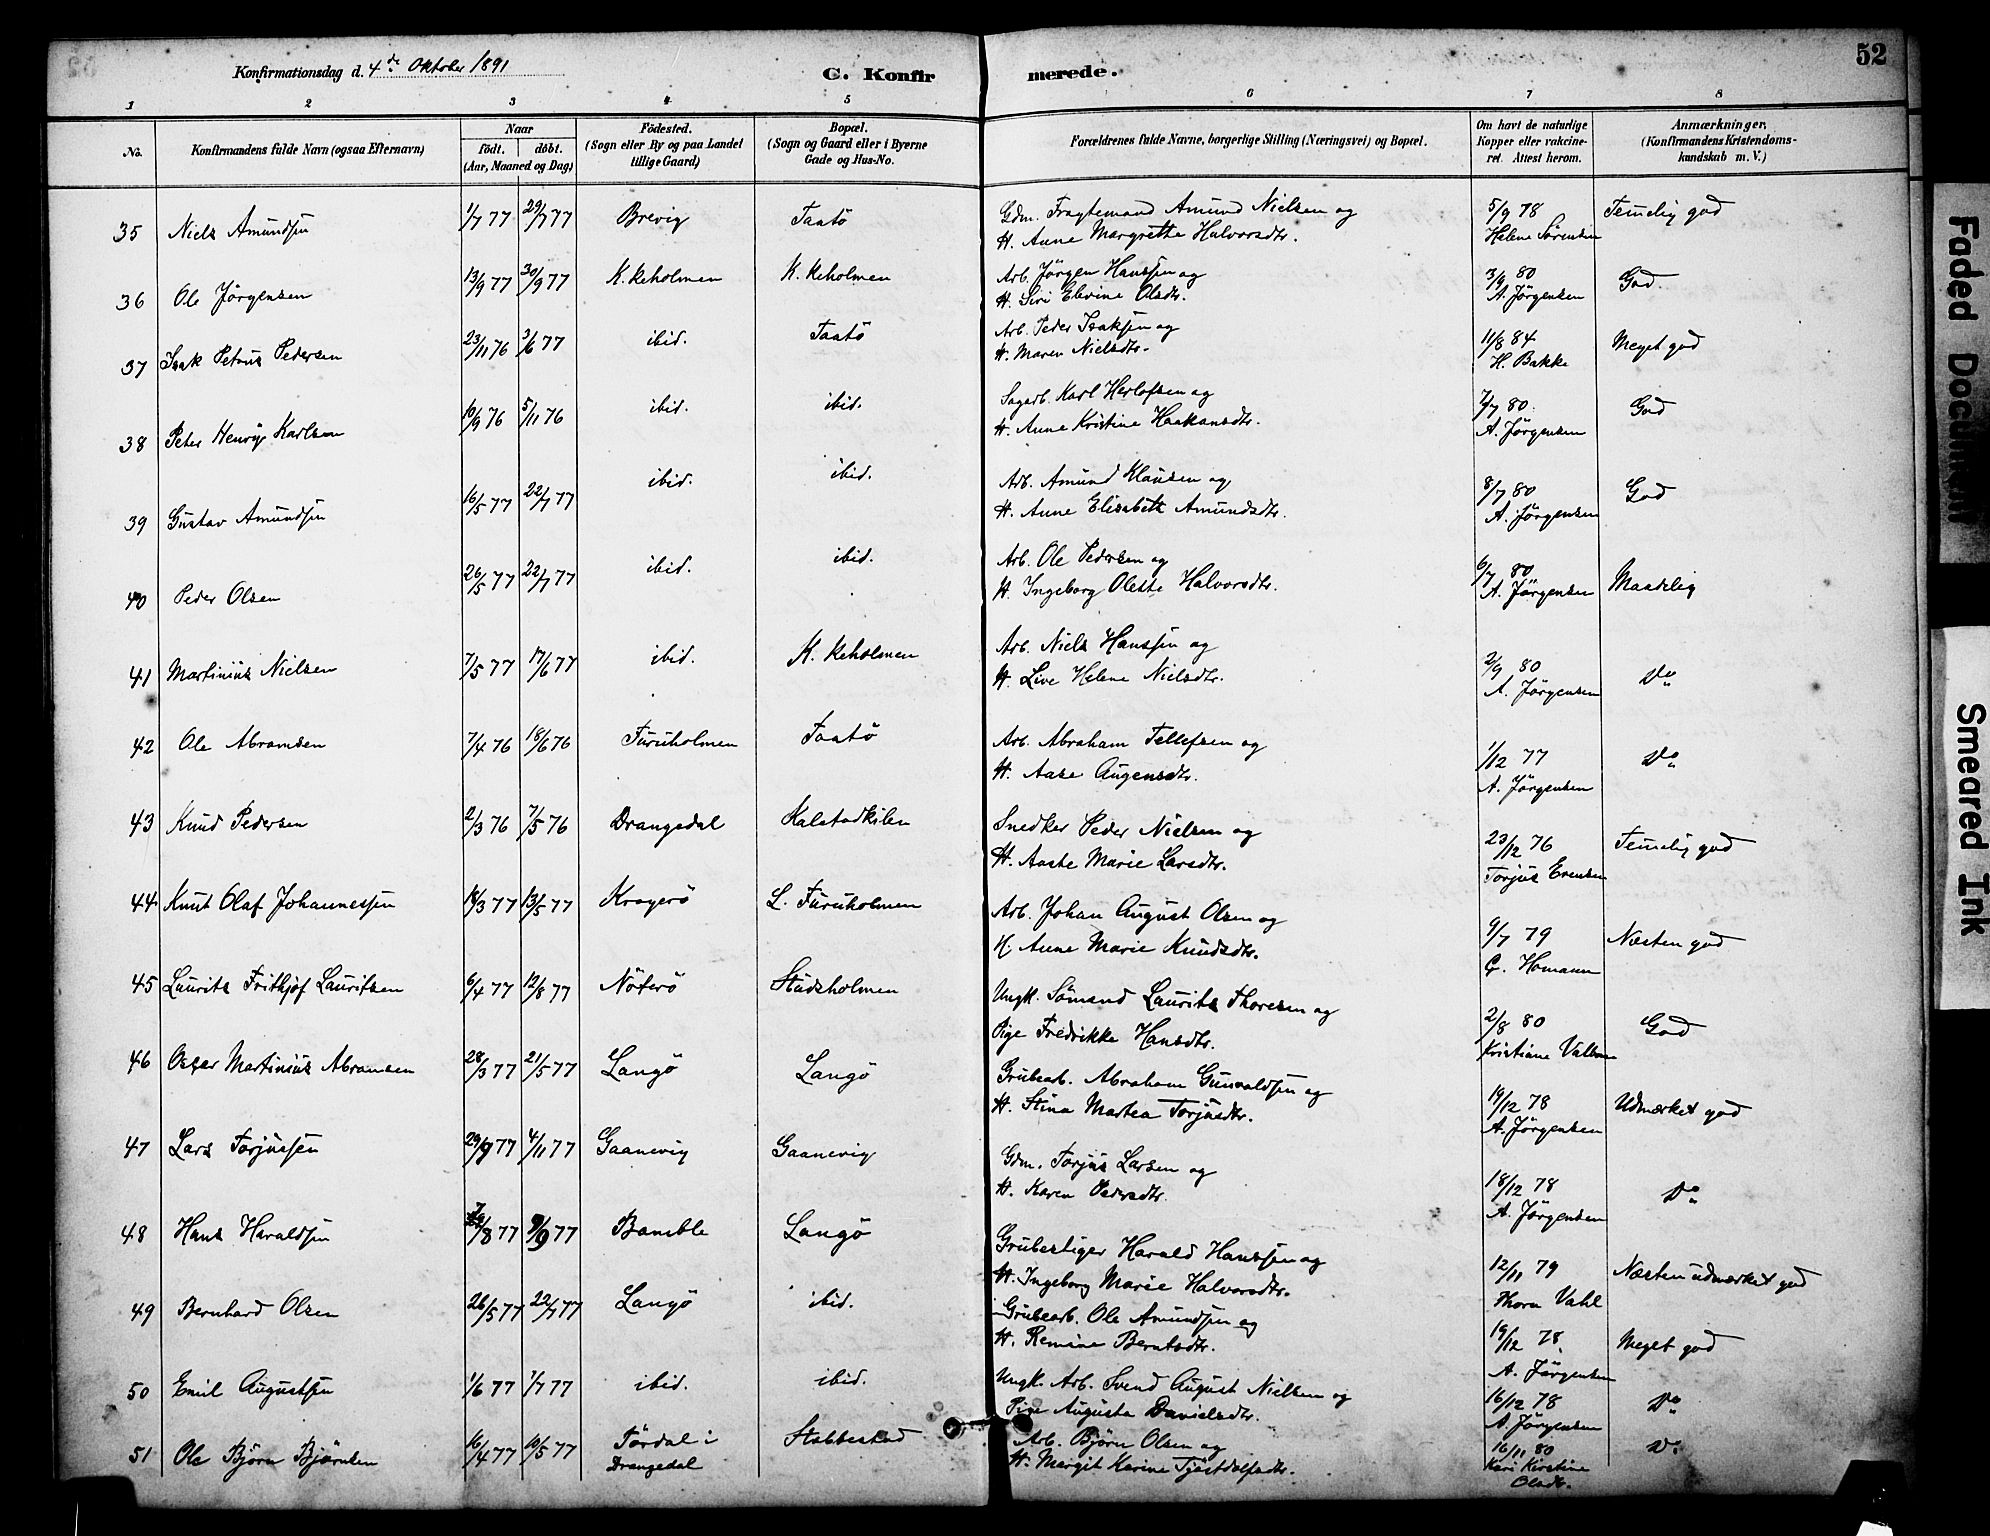 52
Konfirmationsdag d. 4de Oktober 1891
C. Konfir merede.
1 2 3 4 5 6 7 8
No.
Konfirmandens fulde Navn (ogsaa Efternavn)
Naar
födt. döbt.
(Aar, Maaned og Dag)
Födested.
(Sogn eller By og paa Landet
tillige Gaard)
Bopæl.
(Sogn og Gaard eller i Byerne
Gade og Hus-No.
Forældrenes fulde Navne, borgerlige Stilling (Næringsvei) og Bopæl.
Om havt de naturlige
Kopper eller vakcine-
ret. Attest herom.
Anmærkninger.
(Konfirmandens Kristendoms-
kundskab m. V.)
35 Niels Amundsen 1/7 77 29/7 77 Brevig Taatö Gdm. Fragtemand Amund Nielsen og 5/9 78 Temelig god
H. Anne Margrethe Halvorsdtr. Helene Sörensen
36 Ole Jörgensen 13/9 77 30/9 77 K. Keholmen K. Keholmen Arb. Jörgen Hanssen og 3/9 80 God
H. Siri Elevine Olsdtr. A. Jörgensen
37 Isak Petrus Pedersen 23/11 76 3/6 77 ibid. Taatö Arb. Peder Isaksen og 11/8 84 Meget god
H. Maren Nielsdtr. H. Bakke
38 Peter Henrik Karlsen 10/9 76 5/11 76 ibid. ibid. Sagarb. Karl Herlofsen og 7/7 80 God
H. Anne Kristine Haakansdtr. A. Jörgensen
39 Gustav Amundsen 16/5 77 22/7 77 ibid. ibid. Arb. Amund Klausen og 8/7 80 God
H. Anne Elisabeth Amundsdtr. A. Jörgensen
40 Peder Olsen 26/5 77 22/7 77 ibid. ibid. Arb. Ole Pedersen og 6/7 80 Maadelig
H. Ingeborg Olette Halvorsdtr. A. Jörgensen
41 Martinius Nielsen 7/5 77 17/6 77 ibid. K. Keholmen Arb. Niels Hanssen og 2/9 80 Do
H. Live Helene Nielsdtr. A. Jörgensen
42 Ole Abramsen 7/4 76 18/6 76 Furuholmen Taatö Arb. Abraham Tellefsen og 1/12 77 Do
H. Aase Augensdtr. A. Jörgensen
43 Knud Pedersen 2/3 76 7/5 76 Drangedal Kalstadkilen Snedker Peder Nielsen og 23/12 76 Temelig god
H. Aaste Marie Larsdtr. Torjus Evensen
44 Knut Olaf Johannessen 18/3 77 13/5 77 Kragerö L. Furuholmen Arb. Johan August Olsen og 9/7 79 Næsten god
H. Anne Marie Knudsdtr. C. Homann
45 Laurits Frithjof Lauritsen 6/4 77 12/8 77 Nöterö Studsholmen Ungk. Sömand Laurits Thoresen og 2/8 80 God
Pige Fredrikke Hansdtr. Kristiane
46 Oscar Martinius Abramsen 28/3 77 21/5 77 Langö Langö Grubearb. Abraham Gunvaldsen og 19/12 78 Udmærket god
H. Stina Martea Torjusdtr. A. Jörgensen
47 Lars Torjussen 29/9 77 4/11 77 Gaanevig Gaanevig Gdm. Torjus Larsen og 18/12 78 Do
H. Karen Pedersdtr. A. Jörgensen
48 Hans Haraldsen /8 77 9/9 77 Bamble Langö Grubestiger Harald Hanssen og 12/11 79 Næsten udmærket god
H. Ingeborg Marie Halvorsdtr. Thora Vahl
49 Bernhard Olsen 26/5 77 22/7 77 Langö ibid. Grubearb. Ole Amundsen og 19/12 78 Meget god
H. Remine Berntsdtr. A. Jörgensen
50 Emil Augustsen 1/6 77 7/7 77 ibid. ibid. Ungk. Arb. Svend August Nielsen og 16/12 78 Do
Pige Augusta Danielsdtr. A. Jörgensen
51 Ole Björn Björnsen 16/4 77 10/5 77 Tördal i Stabbestad Arb. Björn Olsen og 16/11 80 Do
Drangedal H. Margit Karine Tjöstolfsdtr. Kari Kirstine
Olsdtr.
Faded Document
Smeared Ink